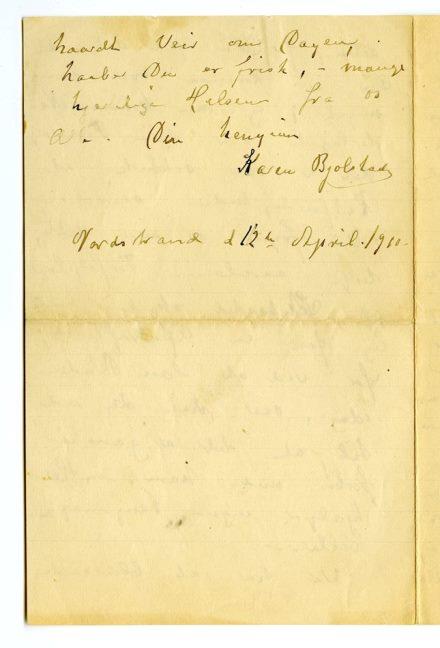 haardt Veir om Dagen,
haaber Du er frisk, – mange
hjertelige Hilsener fra os
Din hengivne
Karen Bjølstad
Nordstrand d 12te April. 1910.